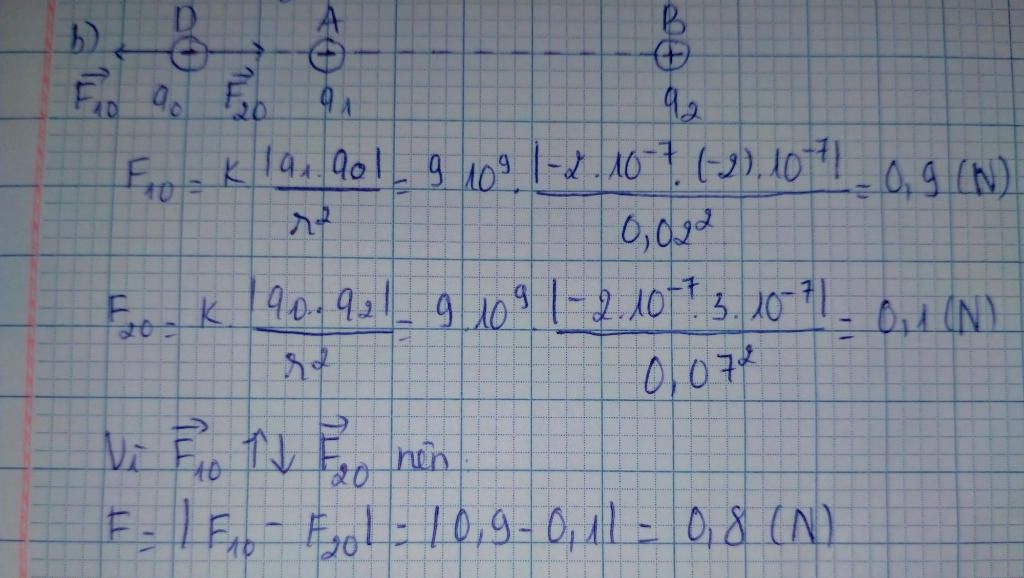 b) D A B
F₁₀ q₀ F₂₀ q₁ q₂
F₁₀ = K |q₁.q₀| / r² = 9 10⁹. |-2.10⁻⁷.(-2).10⁻⁷| / 0,02² = 0,9 (N)
F₂₀ = K. |q₀.q₂| / r² = 9.10⁹. |-2.10⁻⁷.3.10⁻⁷| / 0,07² = 0,1 (N)
Vì F₁₀ ↑↓ F₂₀ nên.
F = |F₁₀ - F₂₀| = |0,9 - 0,1| = 0,8 (N)